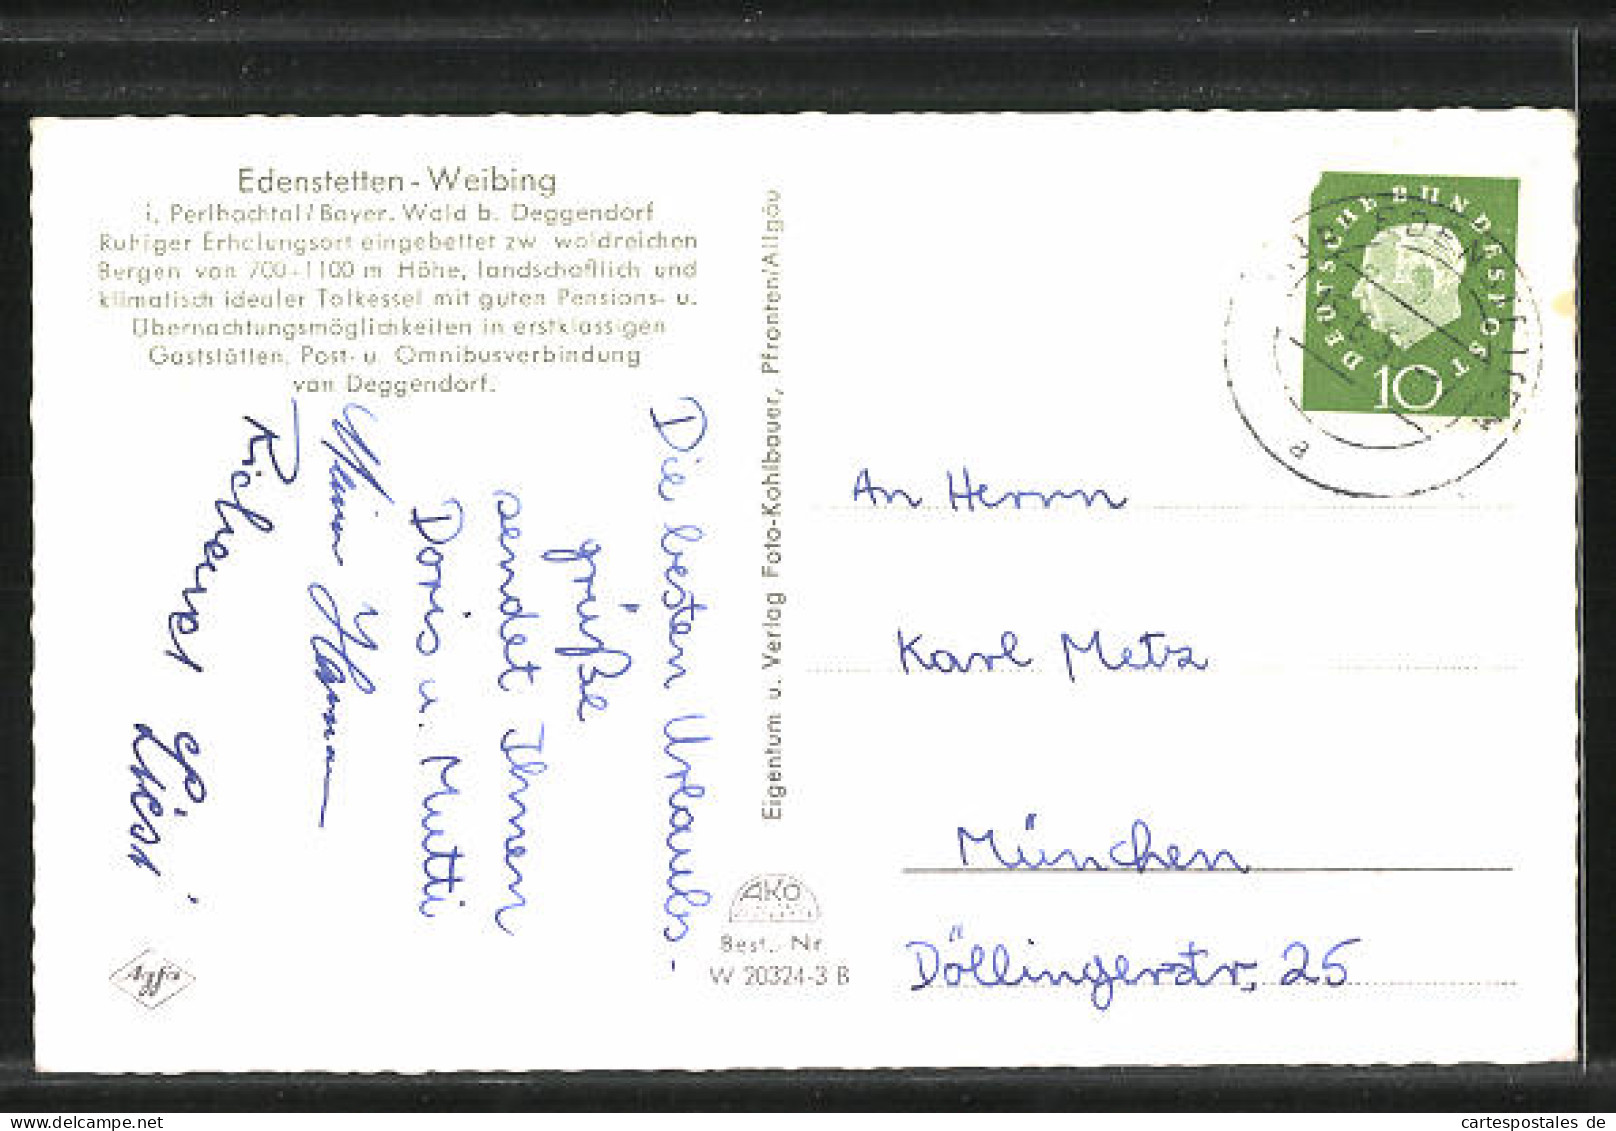 Edenstetten - Weibing
i. Perlbachtal / Bayer. Wald b. Deggendorf
Ruhiger Erholungsort eingebettet zw. waldreichen
Bergen von 700-1100 m Höhe, landschaftlich und
klimatisch idealer Talkessel mit guten Pensions- u.
Übernachtungsmöglichkeiten in erstklassigen
Gaststätten. Post- u. Omnibusverbindung
von Deggendorf.
Die besten Urlaubs-
grüße
sendet Ihnen
Doris u. Mutti
Liesi
Agfa
Eigentum u. Verlag Foto-Kohlbauer, Pfronten/Allgäu
AKO
Best. Nr.
W 20324-3 B
DEUTSCHE BUNDESPOST
10
a
An Herrn
Karl Metz
München
Döllingerstr. 25
cartespostales.de